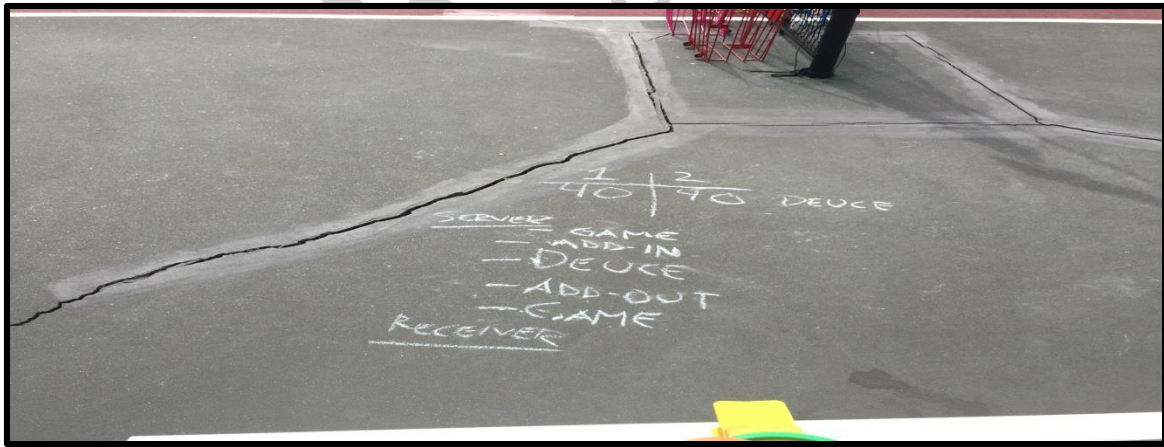 1 | 2
40 | 40 DEUCE
SERVER
- GAME
- ADD-IN
- DEUCE
- ADD-OUT
- GAME
RECEIVER